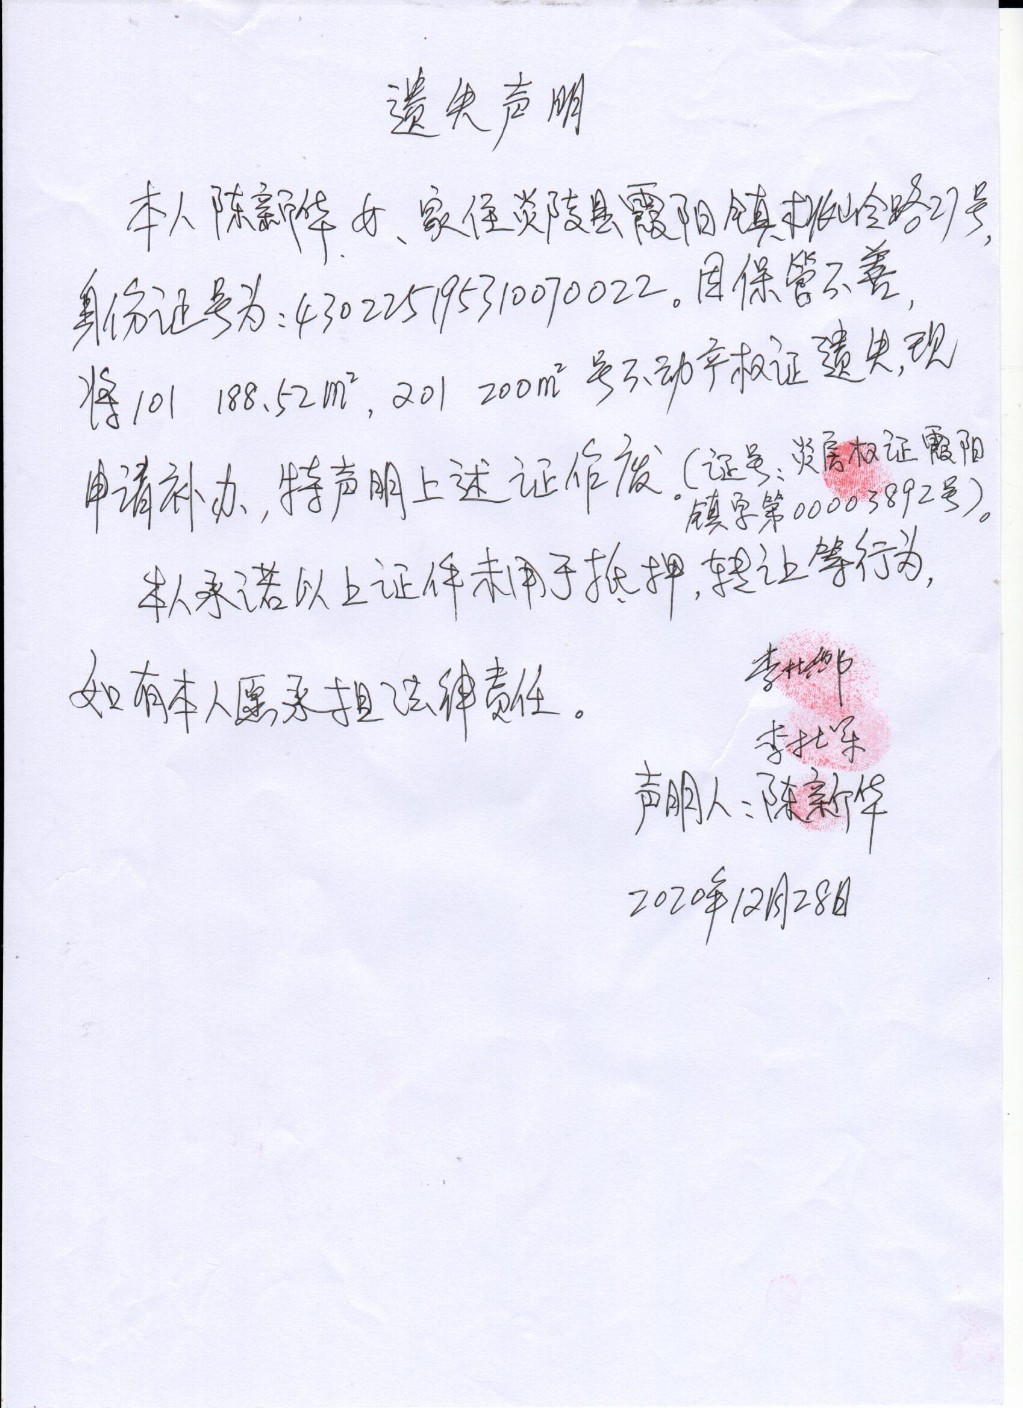 遗失声明
本人陈新华,女、家住炎陵县霞阳镇仙岭路27号,
身份证号为:430225195310070022。因保管不善,
将101 188.52m²,201 200m²号不动产权证遗失,现
申请补办,特声明上述证作废。(证号:炎房权证霞阳
镇字第00003892号)。
本人承诺以上证件未用于抵押,转让等行为,
如有本人愿承担法律责任。
李
李
声明人:陈新华
2020年12月28日